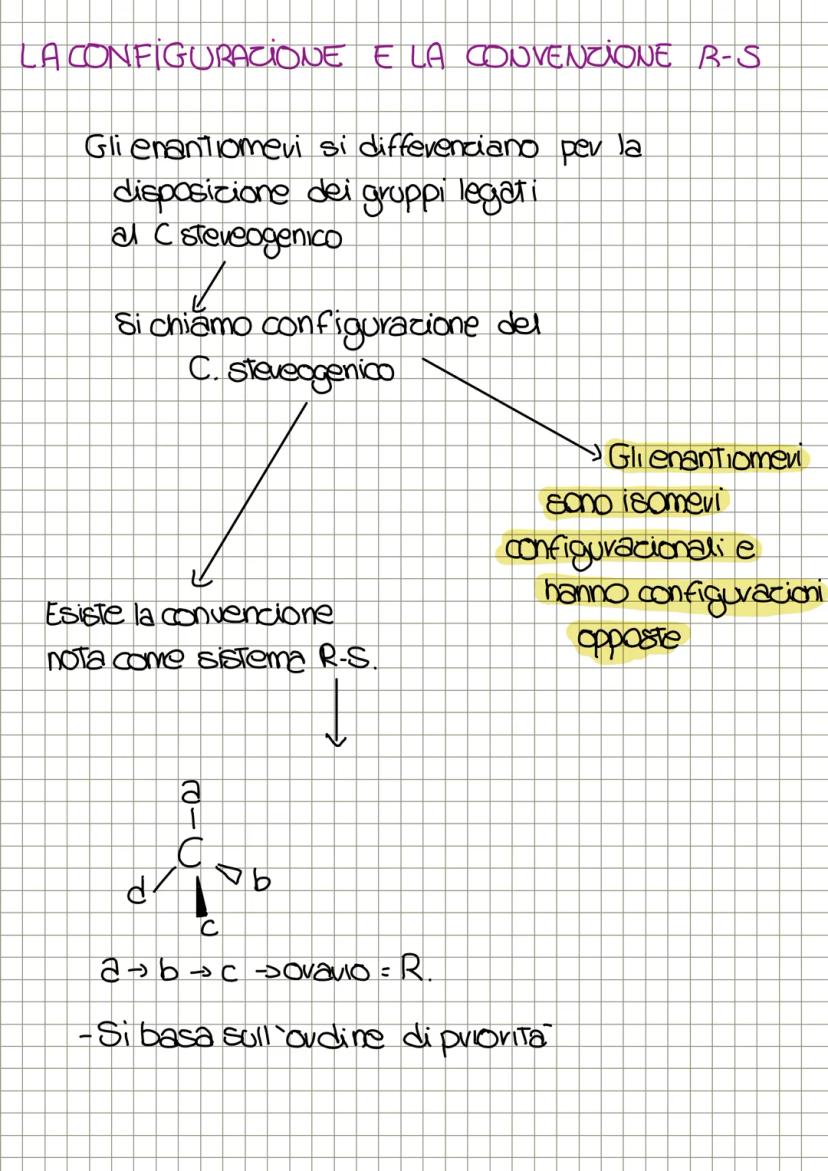 LA CONFIGURAZIONE E LA CONVENZIONE R-S
Gli enantiomeri si differenziano per la
disposizione dei gruppi legati
al C stereogenico
Si chiamo configurazione del
C. stereogenico
Gli enantiomeri
sono isomeri
configurazionali e
hanno configurazioni
opposte
Esiste la convenzione
nota come sistema R-S.
a
C
d
b
c
a → b → c → orario = R.
- Si basa sull'ordine di priorità